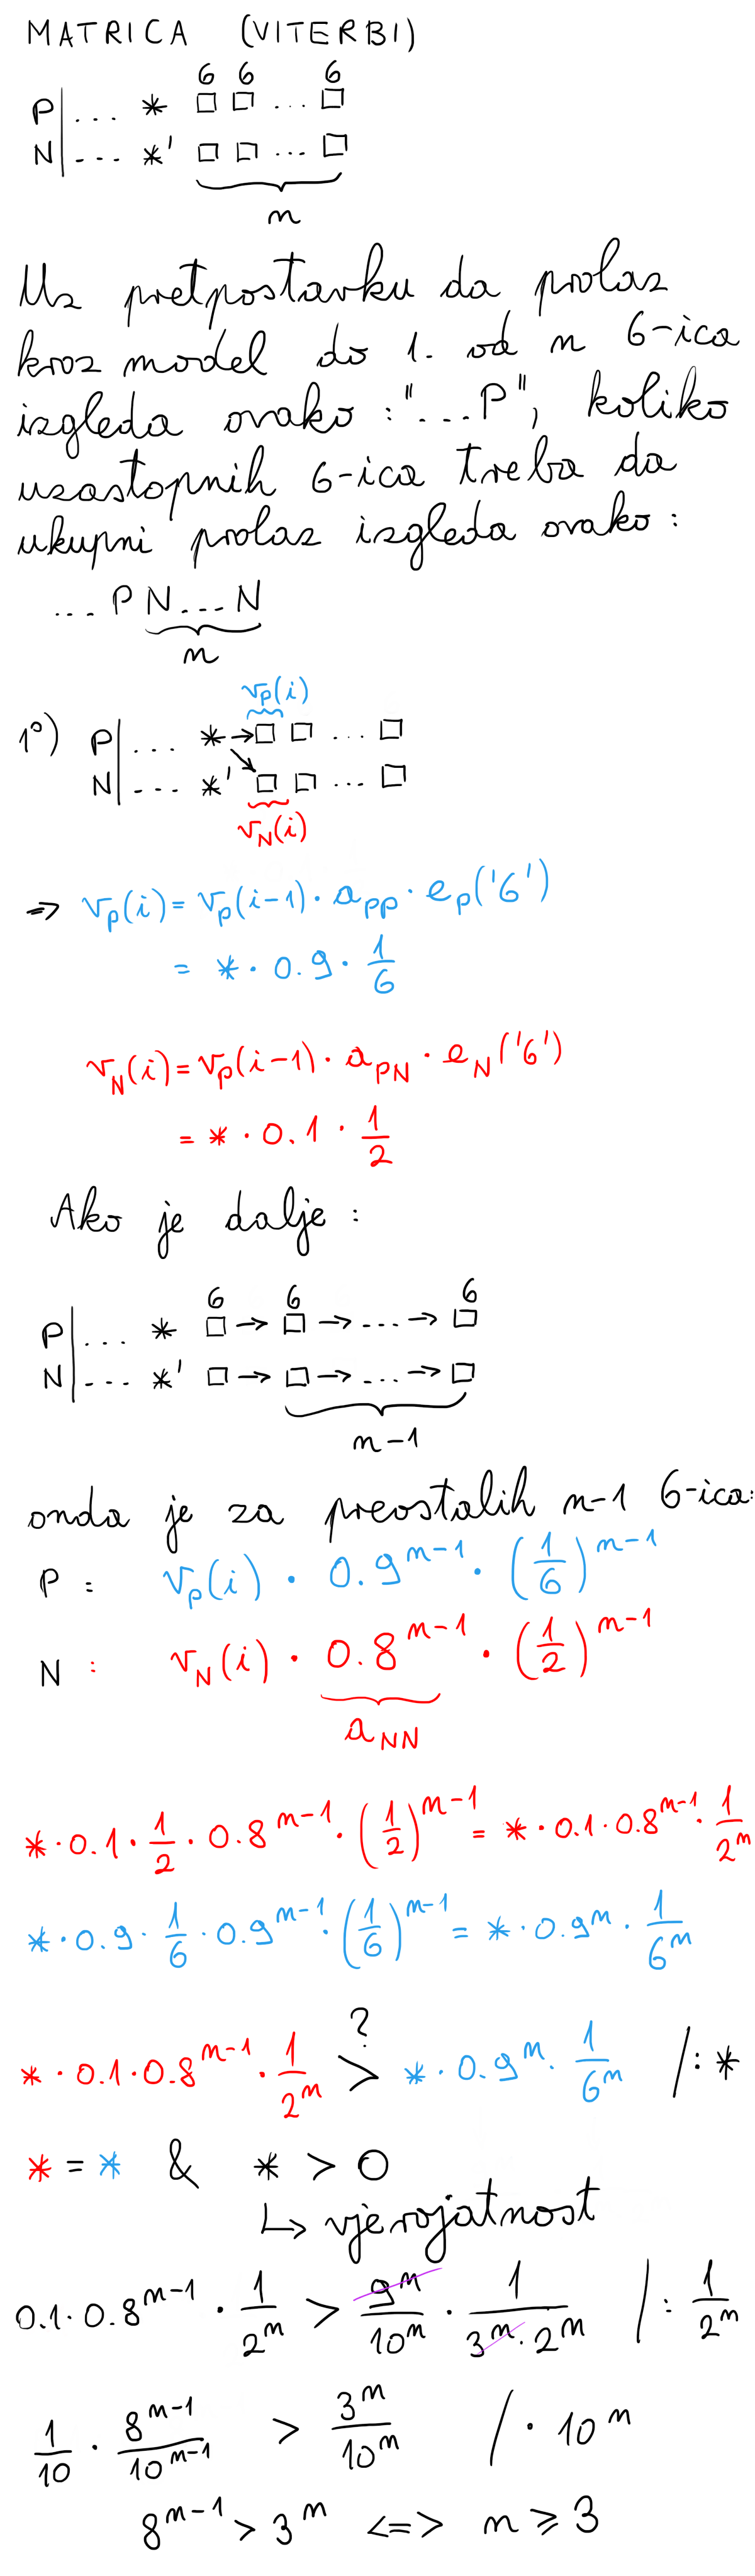 MATRICA (VITERBI)
6 6 6
P| ... * □ □ ... □
N| ... *' □ □ ... □
n
Uz pretpostavku da prolaz
kroz model do 1. od n 6-ica
izgleda ovako : "...P", koliko
uzastopnih 6-ica treba da
ukupni prolaz izgleda ovako :
... P N ... N
n
v_P(i)
1°) P| ... * → □ □ ... □
N| ... *' □ □ ... □
v_N(i)
⇒ v_P(i) = v_P(i-1) · a_PP · e_P('6')
= * · 0.9 · 1/6
v_N(i) = v_P(i-1) · a_PN · e_N('6')
= * · 0.1 · 1/2
Ako je dalje :
6 6 6
P| ... * □ → □ → ... → □
N| ... *' □ → □ → ... → □
n-1
onda je za preostalih n-1 6-ica:
P : v_P(i) · 0.9^(n-1) · (1/6)^(n-1)
N : v_N(i) · 0.8^(n-1) · (1/2)^(n-1)
a_NN
* · 0.1 · 1/2 · 0.8^(n-1) · (1/2)^(n-1) = * · 0.1 · 0.8^(n-1) · 1/2^n
* · 0.9 · 1/6 · 0.9^(n-1) · (1/6)^(n-1) = * · 0.9^n · 1/6^n
?
* · 0.1 · 0.8^(n-1) · 1/2^n > * · 0.9^n · 1/6^n / : *
* = * & * > 0
↳ vjerojatnost
0.1 · 0.8^(n-1) · 1/2^n > 9^n/10^n · 1/(3^n · 2^n) / : 1/2^n
1/10 · 8^(n-1)/10^(n-1) > 3^n/10^n / · 10^n
8^(n-1) > 3^n <=> n ⩾ 3